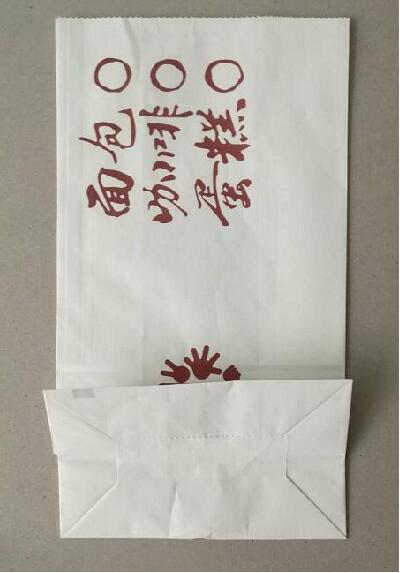 面包 ○
咖啡 ○
蛋糕 ○